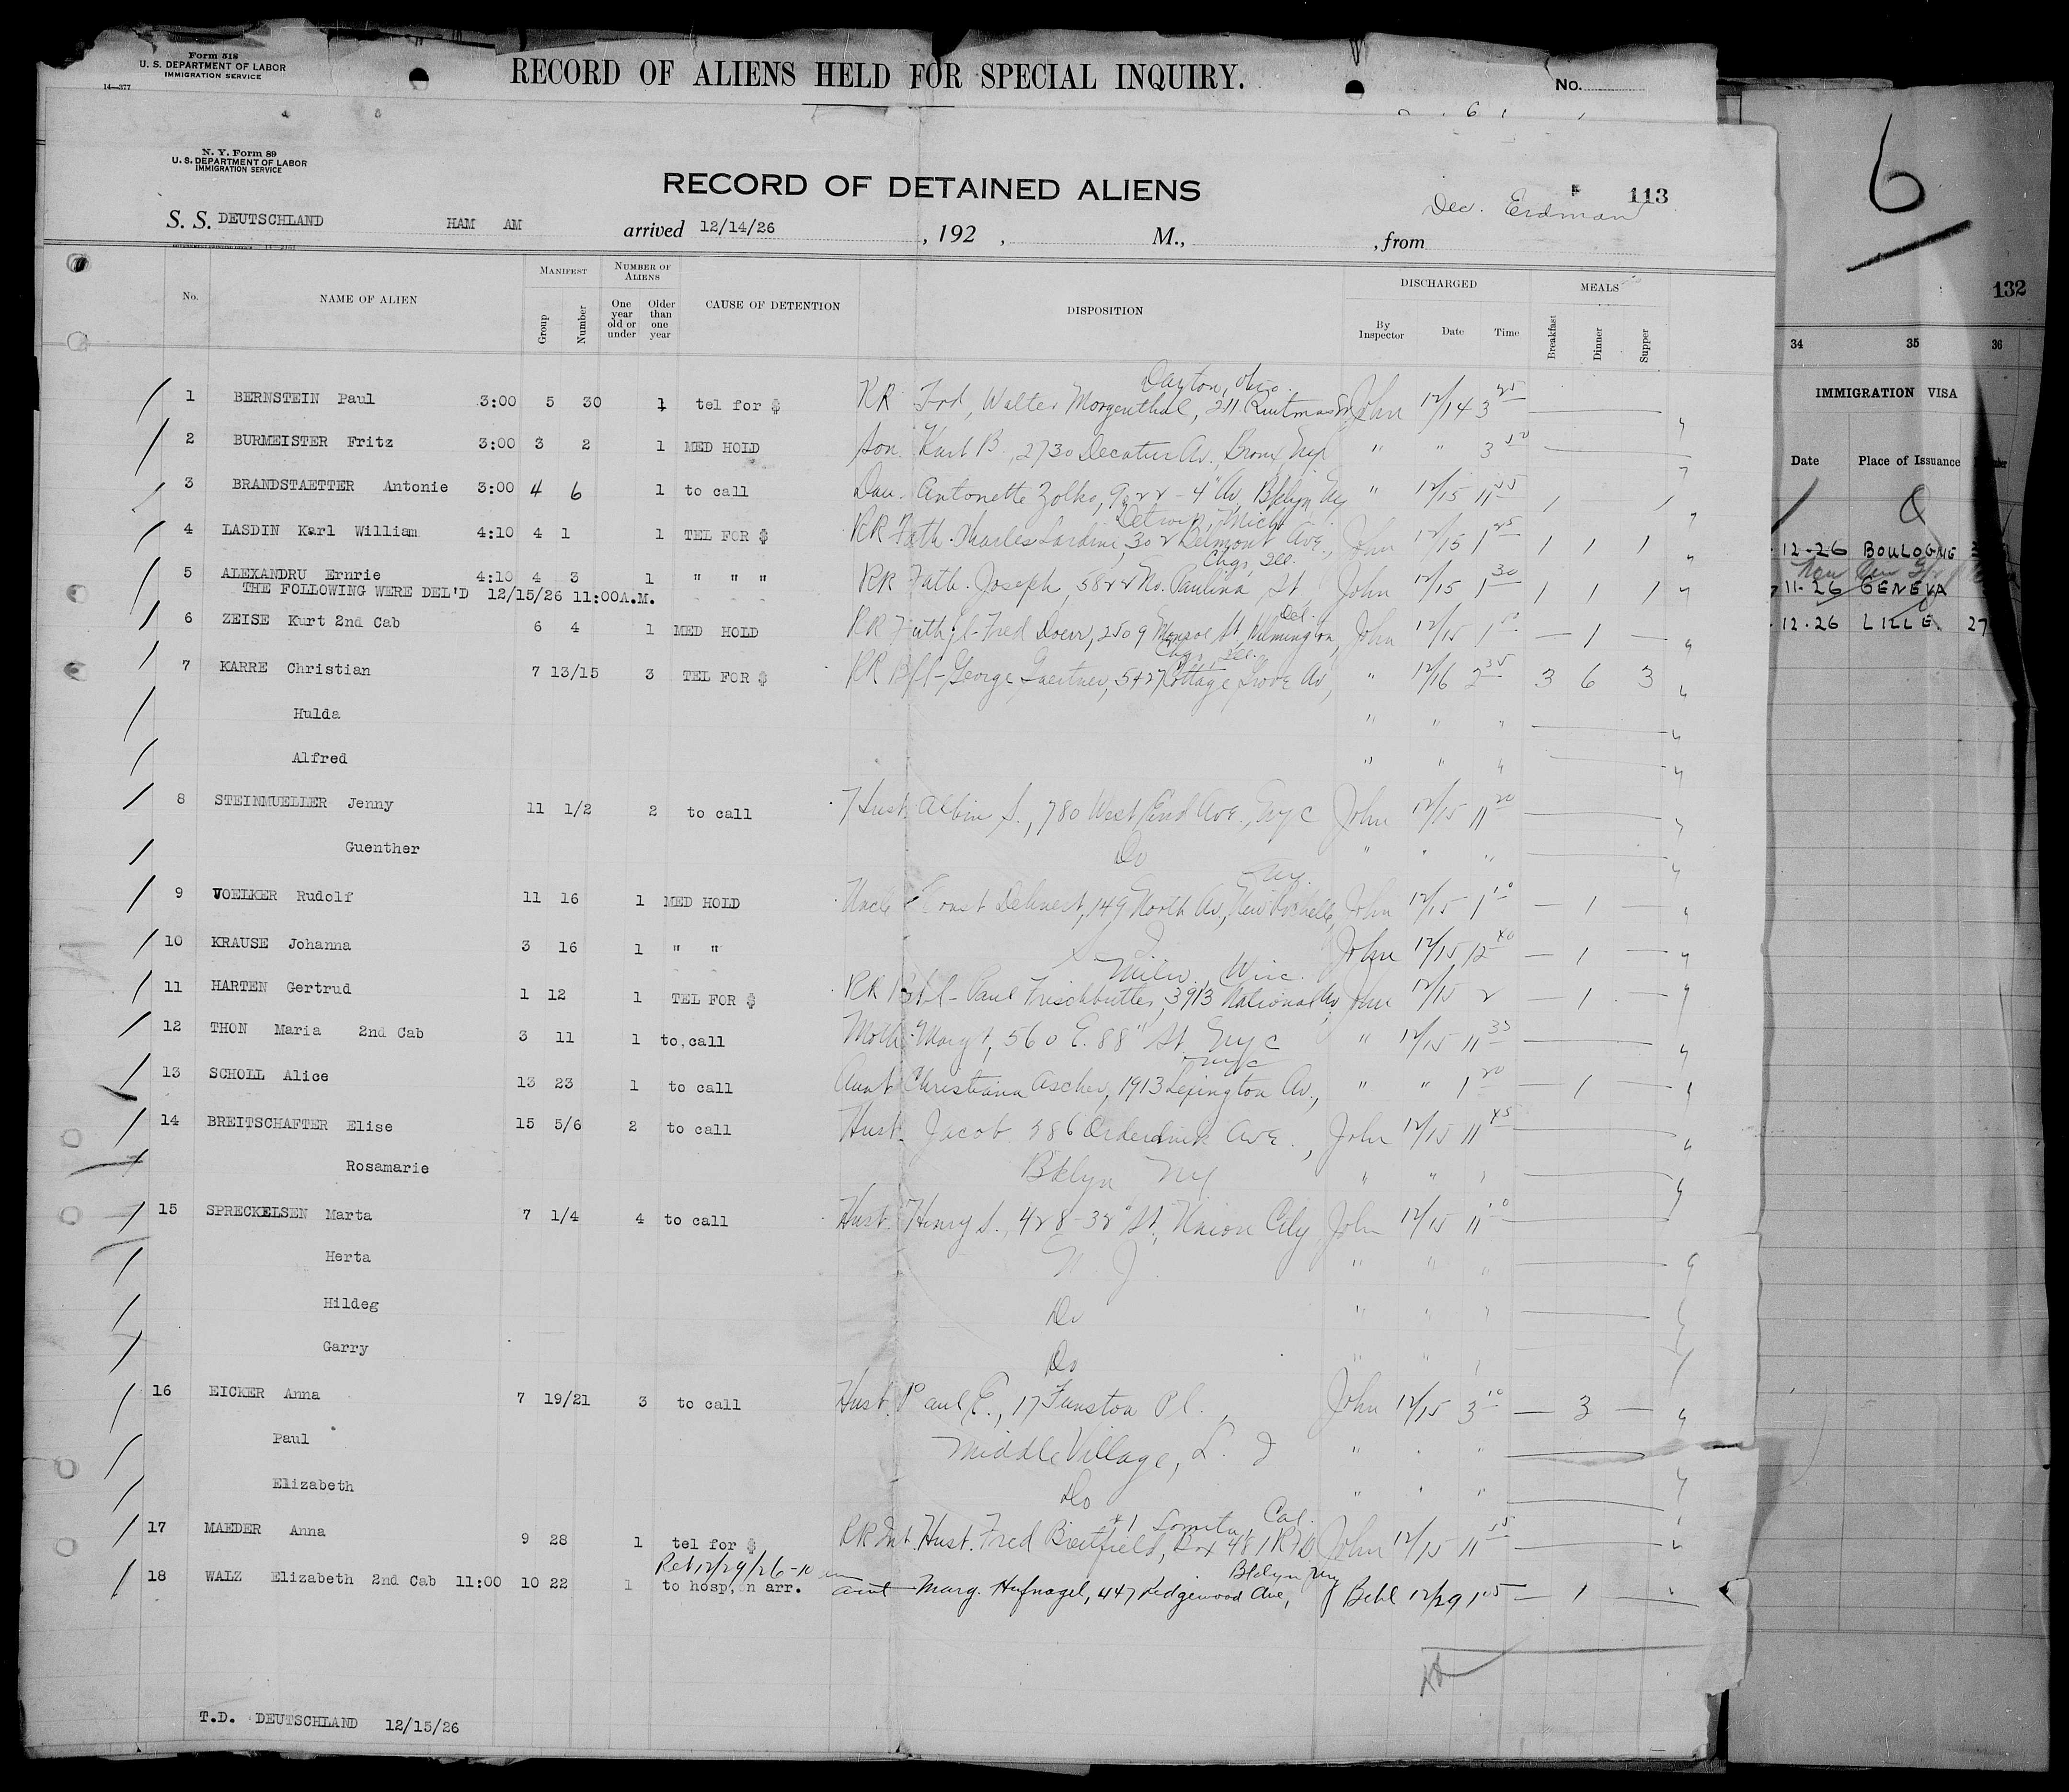 Form 518
U. S. DEPARTMENT OF LABOR
IMMIGRATION SERVICE
14—377
RECORD OF ALIENS HELD FOR SPECIAL INQUIRY.
No.
N. Y. Form 89
U. S. DEPARTMENT OF LABOR
IMMIGRATION SERVICE
RECORD OF DETAINED ALIENS
Dec. Erdman
113
S. S. DEUTSCHLAND HAM AM arrived 12/14/26 , 192 , M., , from
No. NAME OF ALIEN MANIFEST NUMBER OF ALIENS CAUSE OF DETENTION DISPOSITION DISCHARGED MEALS
Group Number One year old or under Older than one year By Inspector Date Time Breakfast Dinner Supper
Dayton, Ohio.
1 BERNSTEIN Paul 3:00 5 30 1 tel for $ RR Frd, Walter Morgenthal, 211 John 12/14 3 25
2 BURMEISTER Fritz 3:00 3 2 1 MED HOLD Son Karl B., 2730 Decatur Av., Bronx, NY " " 3 50
3 BRANDSTAETTER Antonie 3:00 4 6 1 to call Dau. Antonette Zolko, 9222 - 4" Av, Bklyn NY " 12/15 11 55 1 1
Detroit, Mich
4 LASDIN Karl William 4:10 4 1 1 TEL FOR $ RR Fath. Charles 302 Belmont Ave., John 12/15 1 25 1 1 1
Chgo, Ill.
5 ALEXANDRU Ernrie 4:10 4 3 1 " " " RR Fath. Joseph, 5822 No. Paulina St John 12/15 1 30 1 1 1
THE FOLLOWING WERE DEL'D 12/15/26 11:00A.M.
Del.
6 ZEISE Kurt 2nd Cab 6 4 1 MED HOLD RR Fred Doerr, 2509 Monroe St, Wilmington, John 12/15 1 10 — 1 —
Chgo, Ill.
7 KARRE Christian 7 13/15 3 TEL FOR $ RR B/l - George Gaertner, 5427 Cottage Grove Av, " 12/16 2 35 3 6 3
Hulda " " "
Alfred " " "
8 STEINMUELLER Jenny 11 1/2 2 to call Hust. Albin S., 780 West End Ave., NYC John 12/15 11 20
Guenther Do " " "
NY.
9 VOELKER Rudolf 11 16 1 MED HOLD Uncle Ernst Dehnert, 149 North Av, New Rochelle, John 12/15 1 10 — 1 —
10 KRAUSE Johanna 3 16 1 " " John 12/15 12 40 — 1 —
Milw., Wisc.
11 HARTEN Gertrud 1 12 1 TEL FOR $ RR B/l - Paul Frischbutter, 3913 National Av, John 12/15 2 — 1 —
12 THON Maria 2nd Cab 3 11 1 to call Moth. Margt, 560 E. 88" St, NYC " 12/15 11 35
NYC
13 SCHOLL Alice 13 23 1 to call Aunt Christiana Ascher, 1913 Lexington Av., " " 1 20 1
14 BREITSCHAFTER Elise 15 5/6 2 to call Hust. Jacob 586 Ave., John 12/15 11 45
Rosamarie Bklyn NY " " "
15 SPRECKELSEN Marta 7 1/4 4 to call Hust. Henry S., 428 - 32" St, Union City John 12/15 11 10
Herta N. J. " " "
Hildeg Do " " "
Garry Do " " "
16 EICKER Anna 7 19/21 3 to call Hust. Paul E., 17 Funston Pl., John 12/15 3 10 — 3 —
Paul Middle Village, L. I " " "
Elizabeth Do " " "
#1 Lomita, Cal.
17 MAEDER Anna 9 28 1 tel for $ RR Int. Hust. Fred Breitfield, Box 481 RFD John 12/15 11 55
Ret 12/29/26 - 10 am Bklyn NY
18 WALZ Elizabeth 2nd Cab 11:00 10 22 1 to hosp, on arr. aunt Marg. Hufnagel, 447 Ridgewood Ave, Behl 12/29 1 05 — 1 —
T.D. DEUTSCHLAND 12/15/26
6
132
34 35 36
IMMIGRATION VISA
Date Place of Issuance
12-26 BOULOGNE
11-26 GENEVA
12-26 LILLE 27